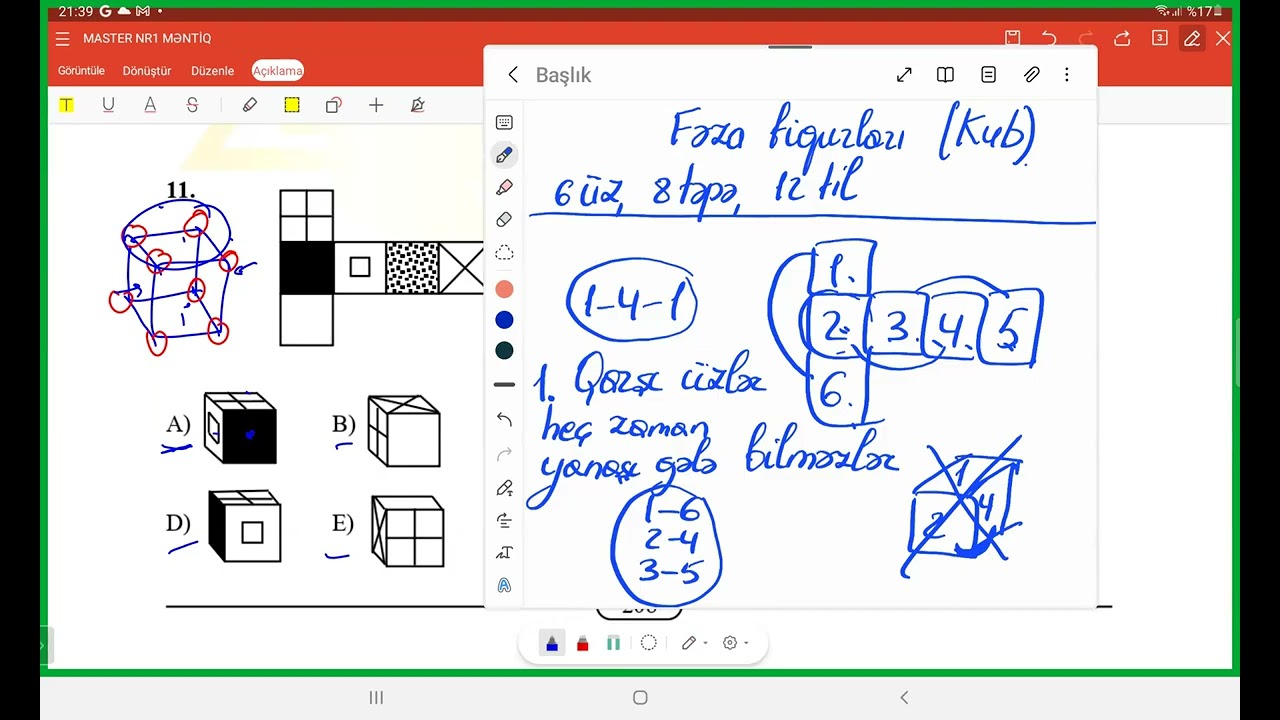 21:39
%17
MASTER NR1 MƏNTİQ
3
Görüntüle Dönüştür Düzenle Açıklama
Başlık
T U A S
Fəza fiqurları (Kub)
6 üz, 8 təpə, 12 til
11.
1-4-1
1.
2. 3. 4. 5
6.
1. Qarşı üzlər
heç zaman
yanaşı gələ bilməzlər
1-6
2-4
3-5
1
2 4
A) B)
D) E)